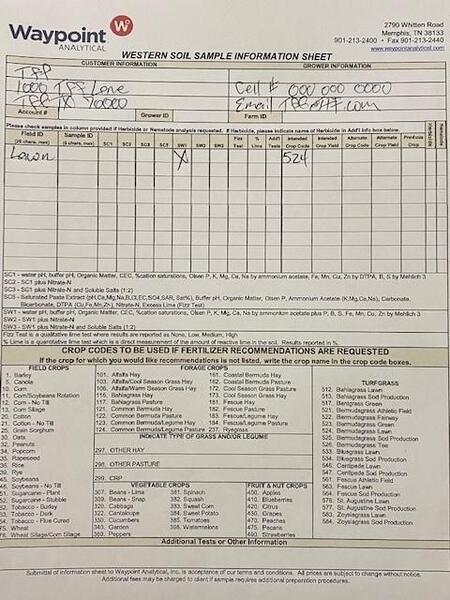 Waypoint
ANALYTICAL
2790 Whitten Road
Memphis, TN 38133
901-213-2400 • Fax 901-213-2440
www.waypointanalytical.com
WESTERN SOIL SAMPLE INFORMATION SHEET
CUSTOMER INFORMATION GROWER INFORMATION
TFF
1000 TFF Lane Cell # 000 000 0000
TFF TX 70000 Email
Account # Grower ID Farm ID
Please check samples in column provided if Herbicide or Nematode analysis requested. If Herbicide, please indicate name of Herbicide in Add'l Info box below.
Field ID Sample ID SC1 SC2 SC3 SC5 SW1 SW2 SW3 Fizz Test % Lime Add'l Tests Intended Crop Code Intended Crop Yield Alternate Crop Code Alternate Crop Yield Previous Crop Herbicide Nematode
Lawn X 524
SC1 - water pH, buffer pH, Organic Matter, CEC, %cation saturations, Olsen P, K, Mg, Ca, Na by ammonium acetate, Fe, Mn, Cu, Zn by DTPA, B, S by Mehlich 3
SC2 - SC1 plus Nitrate-N
SC3 - SC1 plus Nitrate-N and Soluble Salts (1:2)
SC5 - Saturated Paste Extract (pH,Ca,Mg,Na,B,Cl,EC,SO4,SAR, Sat%), Buffer pH, Organic Matter, Olsen P, Ammonium Acetate (K,Mg,Ca,Na), Carbonate,
Bicarbonate, DTPA (Cu,Fe,Mn,Zn), Nitrate-N, Excess Lime (Fizz Test)
SW1 - water pH, buffer pH, Organic Matter, CEC, %cation saturations, K, Mg, Ca, Na by ammonium acetate plus P, B, S, Fe, Mn, Cu, Zn by Mehlich 3
SW2 - SW1 plus Nitrate-N
SW3 - SW1 plus Nitrate-N and Soluble Salts (1:2)
Fizz Test is a qualitative lime test where results are reported as None, Low, Medium, High
% Lime is a quantitative lime test which is a direct measurement of the amount of lime in the soil. Results reported in %.
CROP CODES TO BE USED IF FERTILIZER RECOMMENDATIONS ARE REQUESTED
If the crop for which you would like recommendations is not listed, write the crop name in the crop code boxes.
FIELD CROPS FORAGE CROPS TURFGRASS
1. Barley
5. Canola
10. Corn
11. Corn/Soybeans Rotation
12. Corn - No Till
13. Corn Silage
20. Cotton
21. Cotton - No Till
25. Grain Sorghum
30. Oats
32. Peanuts
34. Popcorn
35. Rapeseed
36. Rice
39. Rye
45. Soybeans
Soybeans - No Till
51. Sugarcane - Plant
52. Sugarcane - Stubble
Tobacco - Burley
Tobacco - Dark
Tobacco - Flue Cured
Wheat
78. Wheat Silage/Corn Silage
101. Alfalfa Hay
103. Alfalfa/Cool Season Grass Hay
106. Alfalfa/Warm Season Grass Hay
116. Bahiagrass Hay
117. Bahiagrass Pasture
121. Common Bermuda Hay
122. Common Bermuda Pasture
123. Common Bermuda/Legume Hay
124. Common Bermuda/Legume Pasture
161. Coastal Bermuda Hay
162. Coastal Bermuda Pasture
172. Cool Season Grass Pasture
173. Cool Season Grass Hay
181. Fescue Hay
182. Fescue Pasture
183. Fescue/Legume Hay
184. Fescue/Legume Pasture
237. Ryegrass
INDICATE TYPE OF GRASS AND/OR LEGUME
297. OTHER HAY
298. OTHER PASTURE
299. CRP
VEGETABLE CROPS FRUIT & NUT CROPS
307. Beans - Lima
309. Beans - Snap
320. Cabbage
322. Cantaloupe
330. Cucumbers
343. Garden
360. Peppers
381. Spinach
382. Squash
383. Sweet Corn
384. Sweet Potato
385. Tomatoes
388. Watermelons
400. Apples
410. Blueberries
420. Citrus
436. Grapes
470. Peaches
475. Pecans
490. Strawberries
512. Bahiagrass Lawn
513. Bahiagrass Sod Production
517. Bentgrass Green
521. Bermudagrass Athletic Field
522. Bermudagrass Fairway
523. Bermudagrass Green
524. Bermudagrass Lawn
525. Bermudagrass Sod Production
526. Bermudagrass Tee
533. Bluegrass Lawn
Bluegrass Sod Production
546. Centipede Lawn
Centipede Sod Production
561. Fescue Athletic Field
563. Fescue Lawn
Fescue Sod Production
576. St. Augustine Lawn
St. Augustine Sod Production
583. Zoysiagrass Lawn
584. Zoysiagrass Sod Production
Additional Tests or Other Information
Submittal of information sheet to Waypoint Analytical, Inc. is acceptance of our terms and conditions. All prices are subject to change without notice.
Additional fees may be charged to client if sample requires additional preparation procedures.